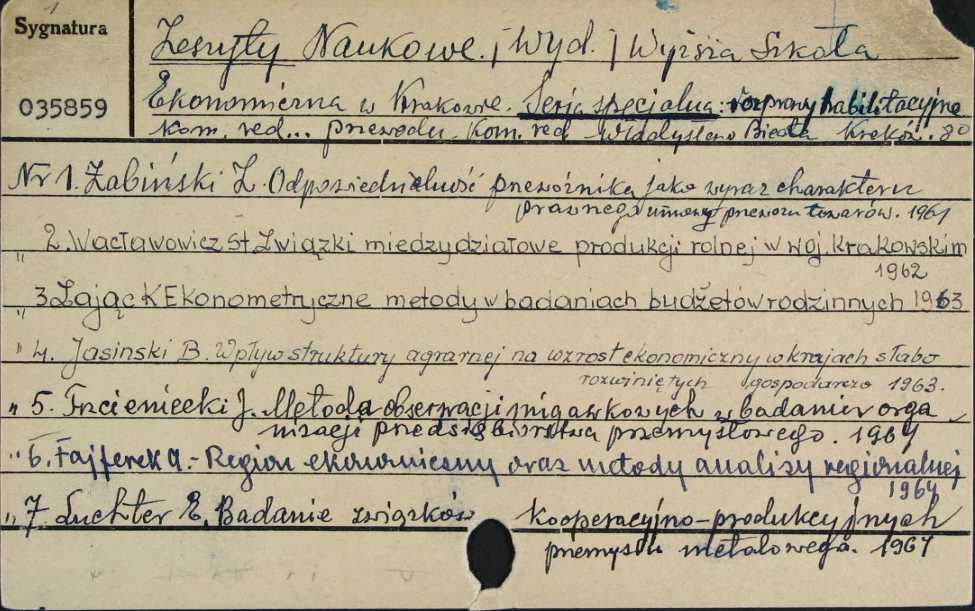 Sygnatura
035859
Zeszyty Naukowe. / Wyd. / Wyższa Szkoła
Ekonomiczna w Krakowie. Serja specjalna: rozprawy habilitacyjne
Kom. red... przewodn. Kom. red Władysław Bieda Kraków. 8°
Nr 1. Żabiński Z. Odpowiedzialność przewoźnika jako wyraz charakteru
prawnego umowy przewozu towarów. 1961
" 2. Wacławowicz St Związki miedzydziałowe produkcji rolnej w woj. Krakowskim
1962
" 3 Zając K Ekonometryczne metody w badaniach budżetów rodzinnych 1963
" 4. Jasinski B. Wpływ struktury agrarnej na wzrost ekonomiczny w krajach słabo
rozwiniętych gospodarczo 1963.
" 5. Trzcieniecki J. Metoda obserwacji migawkowych w badaniu orga
nizacji przedsiębiorstwa przemysłowego. 1964
" 6. Fajferek A. - Region ekonomiczny oraz metody analizy regionalnej
1964
" 7 Luchter E. Badanie związków kooperacyjno-produkcyjnych
przemysłu metalowego. 1964